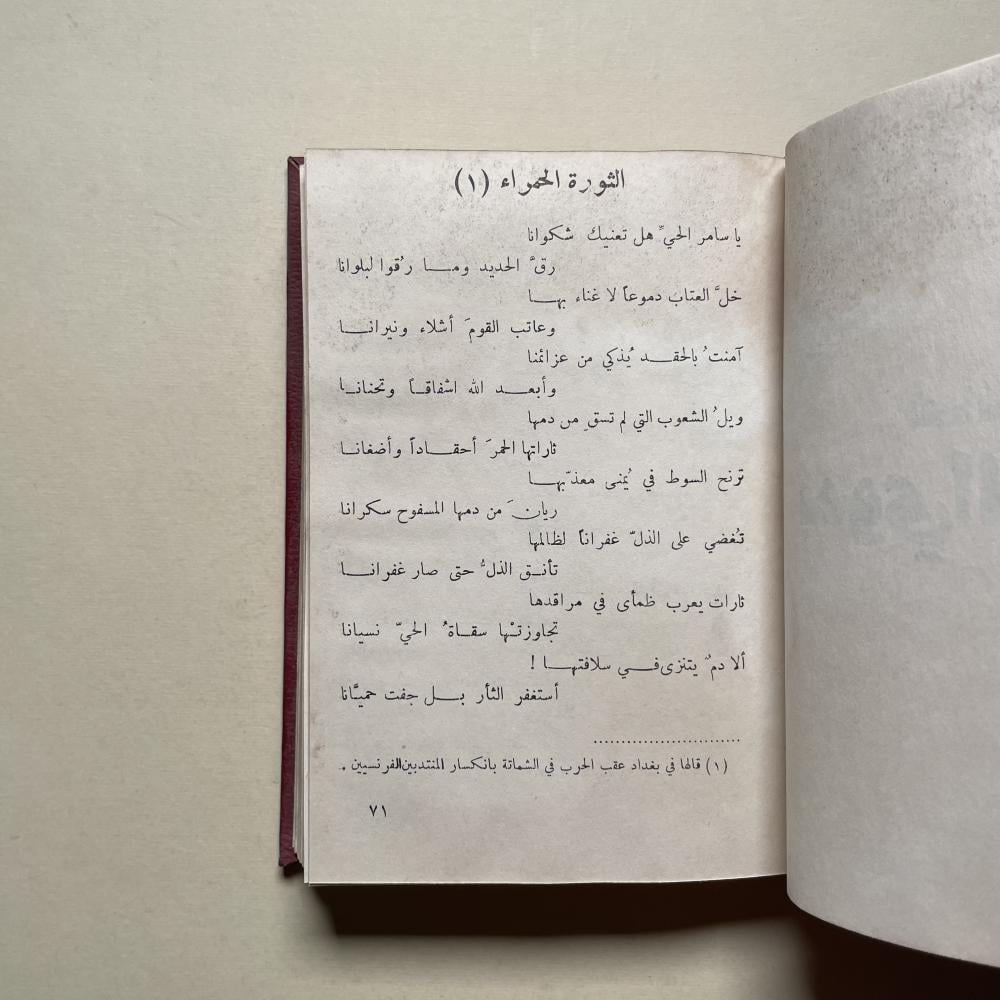 الثورة الحمراء (١)
يا سامر الحيِّ هل تعنيك شكوانا
رقَّ الحديد ومـــا رُقوا لبلوانا
خلَّ العتاب دموعاً لا غناء بهـــا
وعاتب القومَ أشلاء ونيرانـــا
آمنتُ بالحقـــد يُذكي من عزائمنا
وأبعـــد الله اشفاقـــاً وتحنانـــا
ويلُ الشعوب التي لم تسقِ من دمها
ثاراتها الحمرَ أحقـــاداً وأضغانـــا
ترنح السوط في يُمنى معذّبهـــا
ريانَ من دمها المسفوح سكرانا
تُغضي على الذلّ غفراناً لظالمها
تأنـــق الذلُّ حتى صار غفرانـــا
ثارات يعرب ظمأى في مراقدها
تجاوزتْها سقـــاةُ الحيّ نسيانا
ألا دمٌ يتنزى فـــي سلافتهـــا !
أستغفر الثأر بـــل جفت حميَّانا
(١) قالها في بغداد عقب الحرب في الشماتة بانكسار المنتدبين الفرنسيين .
٧١